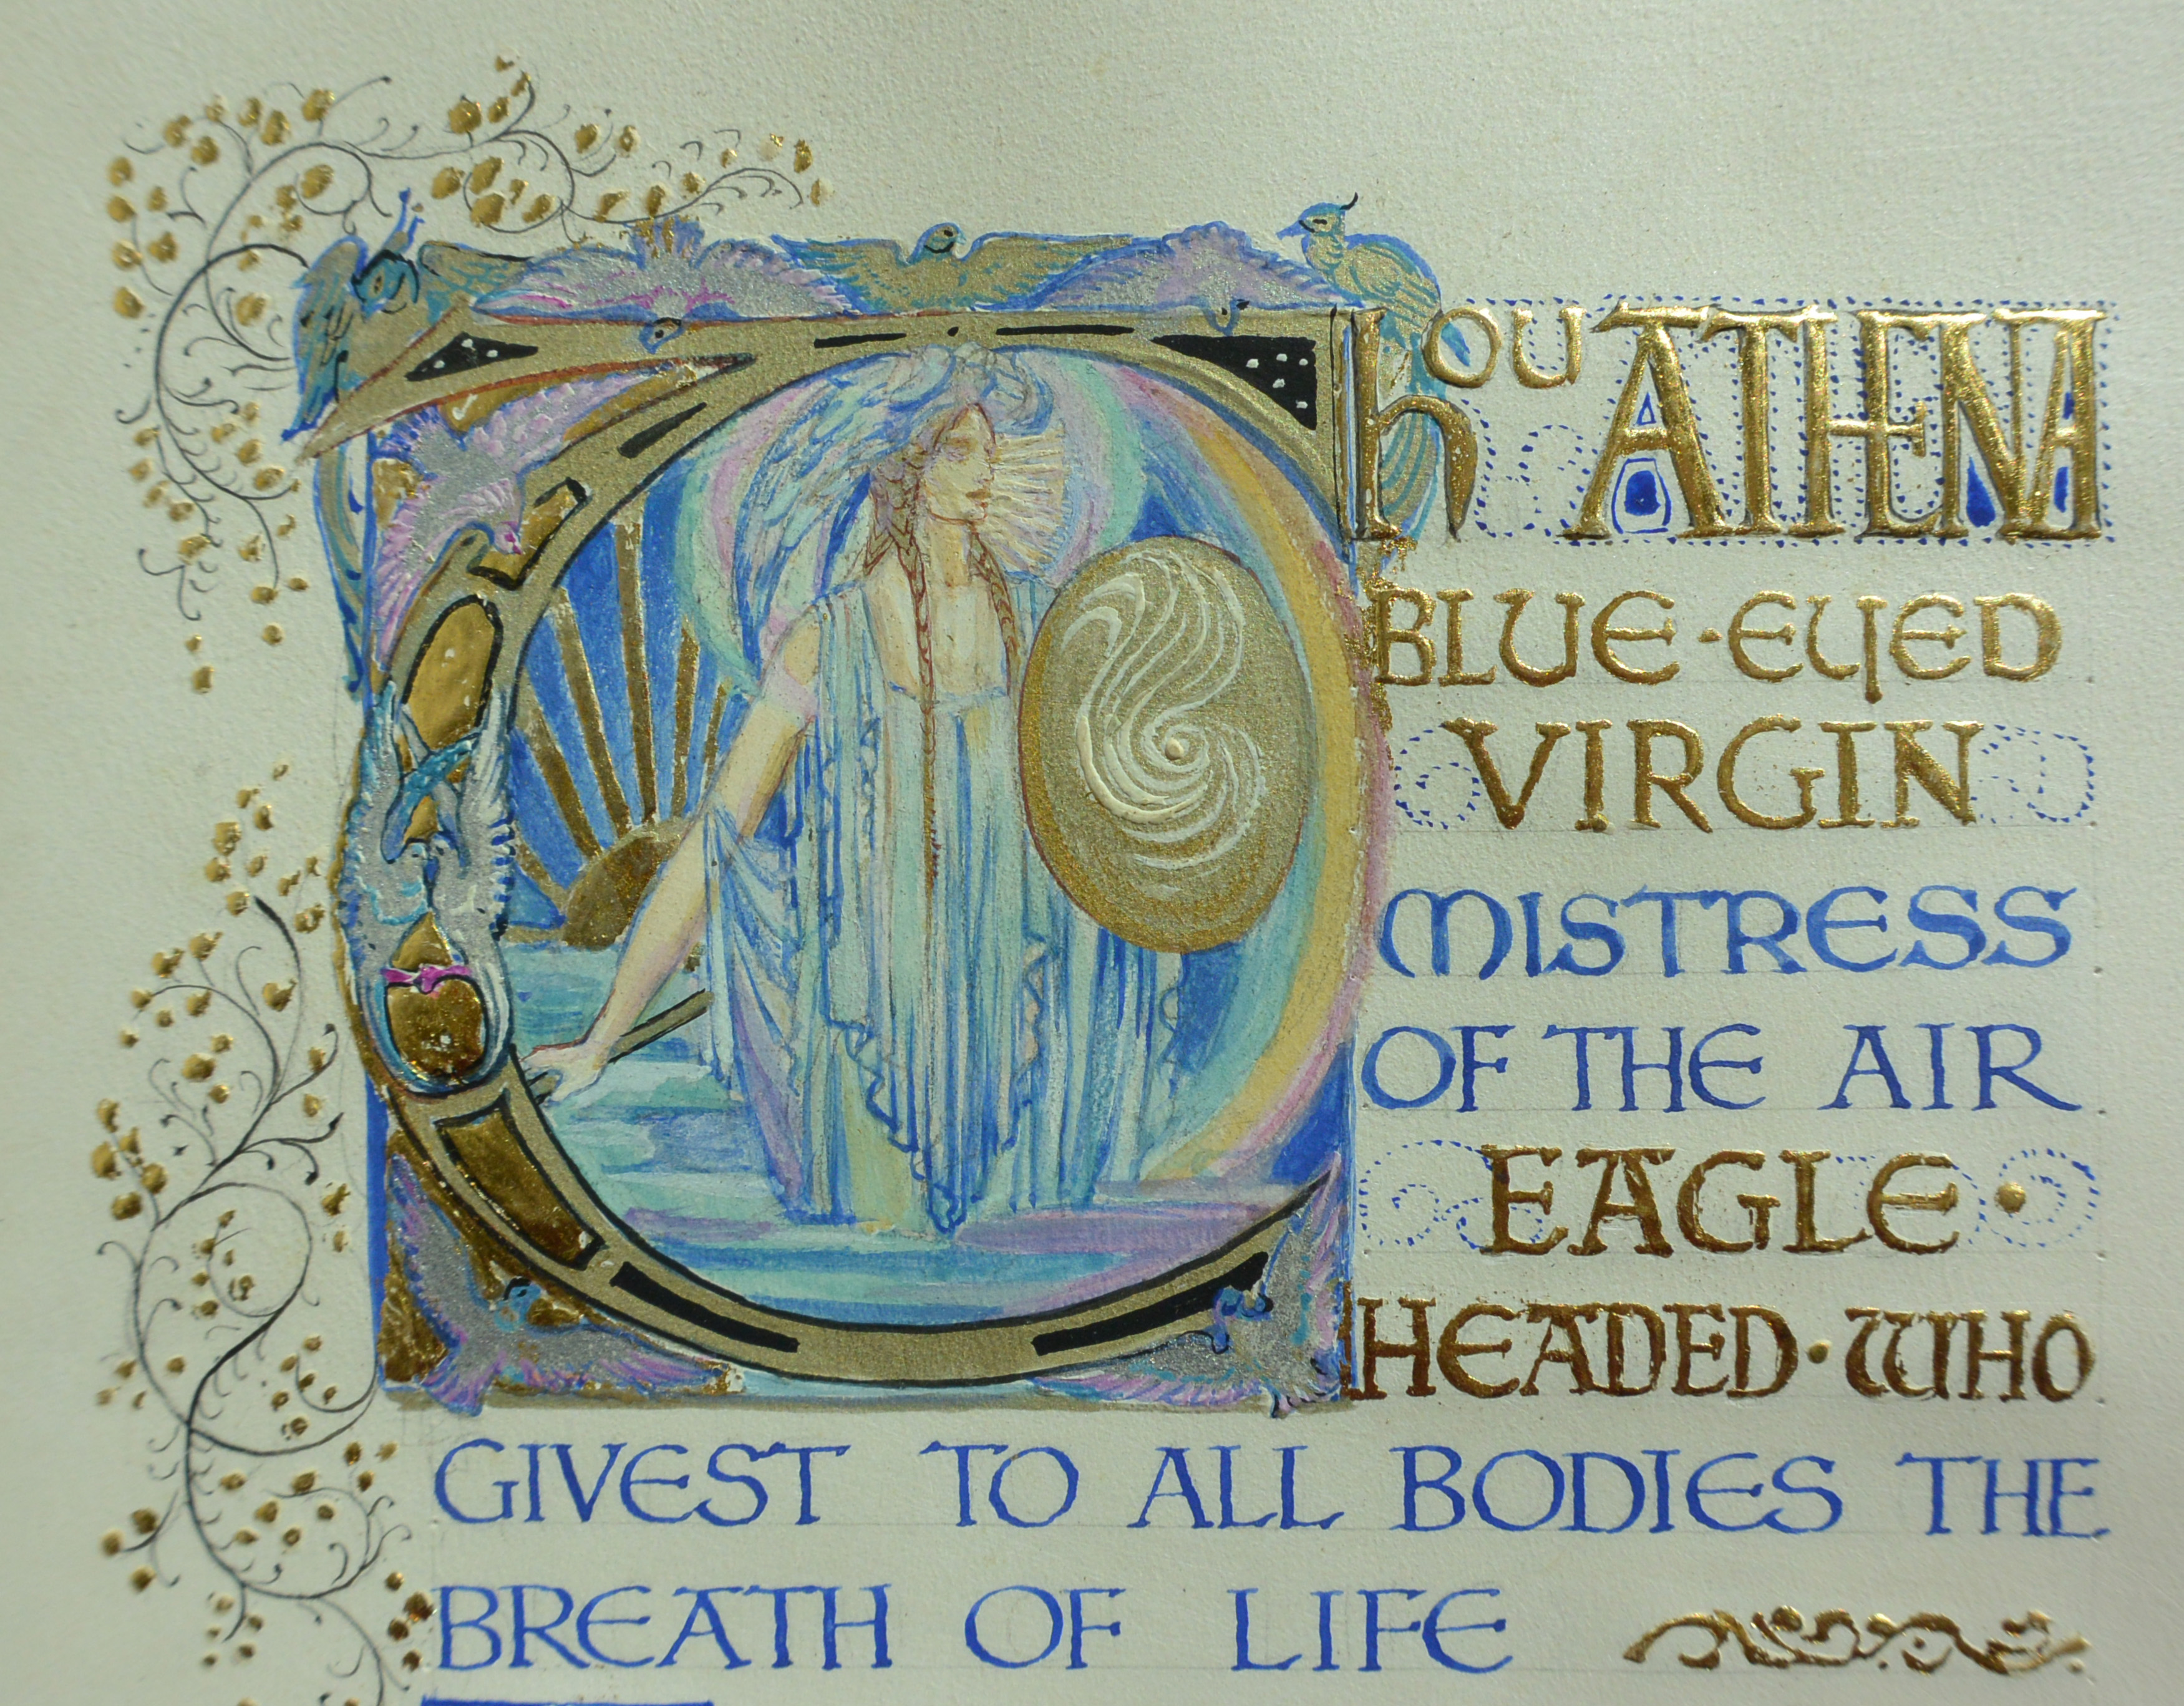 Thou ATHENA
BLUE·EYED
VIRGIN
MISTRESS
OF THE AIR
EAGLE·
HEADED·WHO
GIVEST TO ALL BODIES THE
BREATH OF LIFE